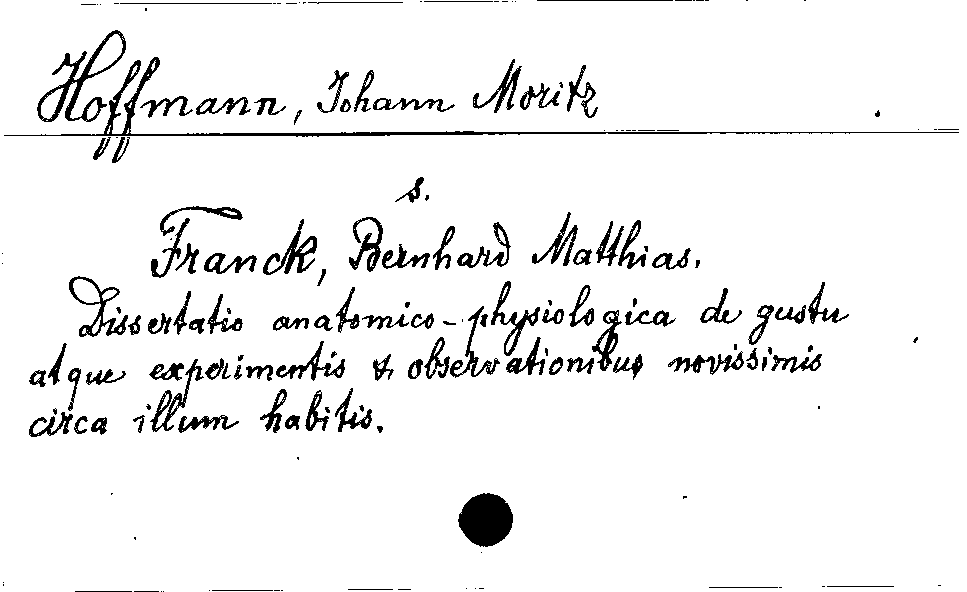 Hoffmann, Johann Moritz
s.
Franck, Bernhard Matthias.
Dissertatio anatomico-physiologica de gustu
atque experimentis & observationibus novissimis
circa illum habitis.